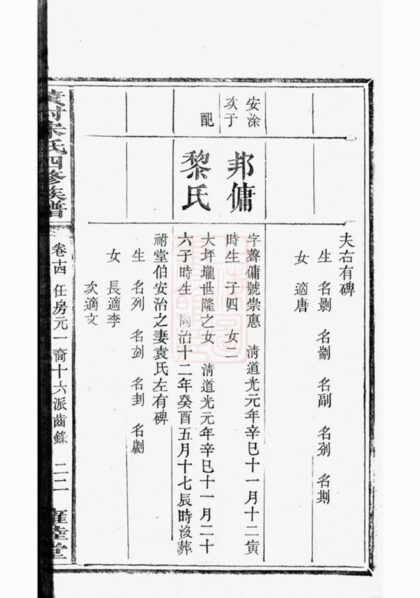 夫右有碑
生 名 名 名副 名 名
女 適唐
安涂
次子
邦傭
字聲傭號崇憲 清道光元年辛巳十一月十二寅
時生 子四 女二
配
黎氏
大坪壠世隆之女 清道光元年辛巳十一月二十
六子時生 同治十二年癸酉五月十七辰時沒葬
祠堂伯安治之妻袁氏左有碑
生 名列 名刻 名 名
女 長適李
次適文
村朱氏四修族譜
卷十四 任房元一裔十六派齒錄 二二
雍睦堂